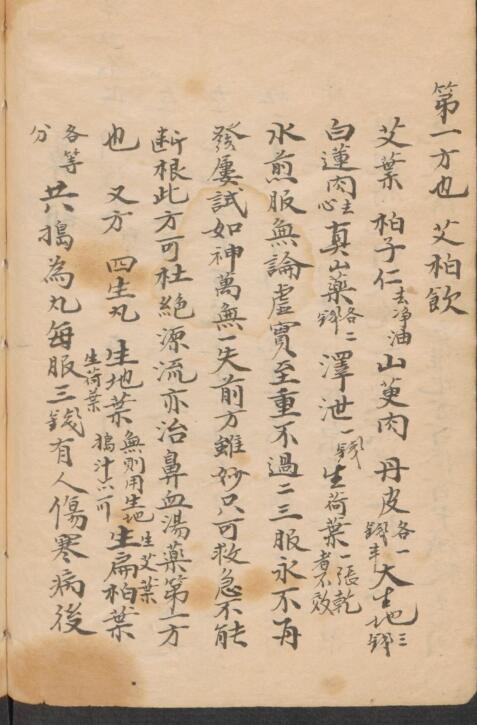 第一方也　艾柏飲
艾葉　柏子仁去净油山萸肉　丹皮各一錢半大生地三錢
白蓮肉去心真山藥各二錢澤泄一錢生荷葉一張乾者不效
水煎服無論虛實至重不過二三服永不再
發屢試如神萬無一失前方雖妙只可救急不能
断根此方可杜絕源流亦治鼻血湯藥第一方
也　又方　四生丸　生地葉無則用生地搗汁亦可生艾葉生荷葉生扁柏葉
各等分共搗為丸每服三錢有人傷寒病後